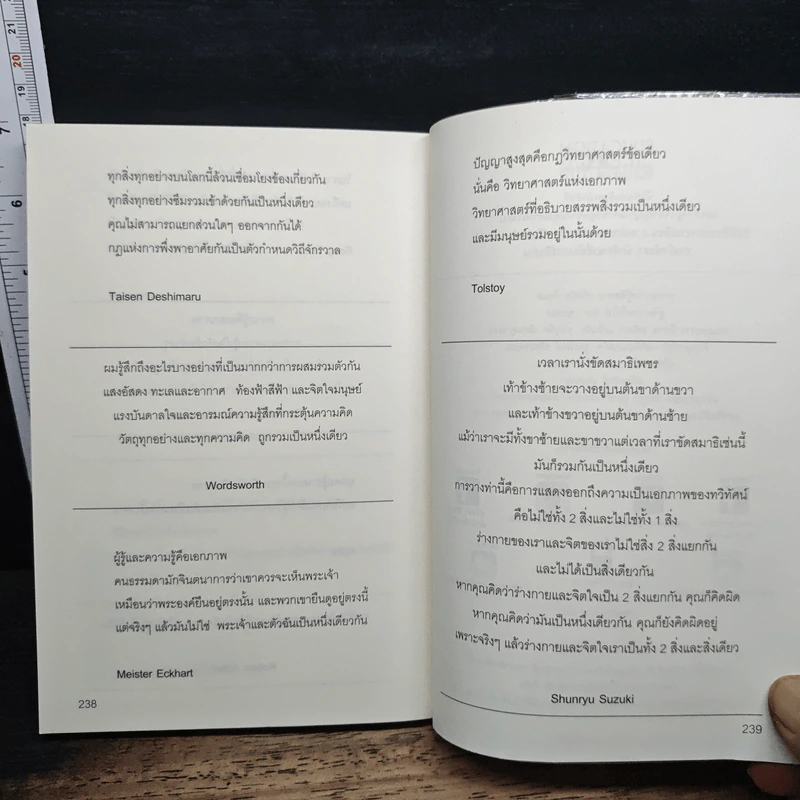 ทุกสิ่งทุกอย่างบนโลกนี้ล้วนเชื่อมโยงข้องเกี่ยวกัน
ทุกสิ่งทุกอย่างซึมรวมเข้าด้วยกันเป็นหนึ่งเดียว
คุณไม่สามารถแยกส่วนใดๆ ออกจากกันได้
กฎแห่งการพึ่งพาอาศัยกันเป็นตัวกำหนดวิถีจักรวาล
Taisen Deshimaru
ผมรู้สึกถึงอะไรบางอย่างที่เป็นมากกว่าการผสมรวมตัวกัน
แสงอัสดง ทะเลและอากาศ ท้องฟ้าสีฟ้า และจิตใจมนุษย์
แรงบันดาลใจและอารมณ์ความรู้สึกที่กระตุ้นความคิด
วัตถุทุกอย่างและทุกความคิด ถูกรวมเป็นหนึ่งเดียว
Wordsworth
ผู้รู้และความรู้คือเอกภาพ
คนธรรมดามักจินตนาการว่าเขาควรจะเห็นพระเจ้า
เหมือนว่าพระองค์ยืนอยู่ตรงนั้น และพวกเขายืนดูอยู่ตรงนี้
แต่จริงๆ แล้วมันไม่ใช่ พระเจ้าและตัวฉันเป็นหนึ่งเดียวกัน
Meister Eckhart
238
ปัญญาสูงสุดคือกฎวิทยาศาสตร์ข้อเดียว
นั่นคือ วิทยาศาสตร์แห่งเอกภาพ
วิทยาศาสตร์ที่อธิบายสรรพสิ่งรวมเป็นหนึ่งเดียว
และมีมนุษย์รวมอยู่ในนั้นด้วย
Tolstoy
เวลาเรานั่งขัดสมาธิเพชร
เท้าข้างซ้ายจะวางอยู่บนต้นขาด้านขวา
และเท้าข้างขวาอยู่บนต้นขาด้านซ้าย
แม้ว่าเราจะมีทั้งขาซ้ายและขาขวาแต่เวลาที่เราขัดสมาธิเช่นนี้
มันก็รวมกันเป็นหนึ่งเดียว
การวางท่านี้คือการแสดงออกถึงความเป็นเอกภาพของทวิทัศน์
คือไม่ใช่ทั้ง 2 สิ่งและไม่ใช่ทั้ง 1 สิ่ง
ร่างกายของเราและจิตของเราไม่ใช่สิ่ง 2 สิ่งแยกกัน
และไม่ได้เป็นสิ่งเดียวกัน
หากคุณคิดว่าร่างกายและจิตใจเป็น 2 สิ่งแยกกัน คุณก็คิดผิด
หากคุณคิดว่ามันเป็นหนึ่งเดียวกัน คุณก็ยังคิดผิดอยู่
เพราะจริงๆ แล้วร่างกายและจิตใจเราเป็นทั้ง 2 สิ่งและสิ่งเดียว
Shunryu Suzuki
239
21
20
19
18
7
6